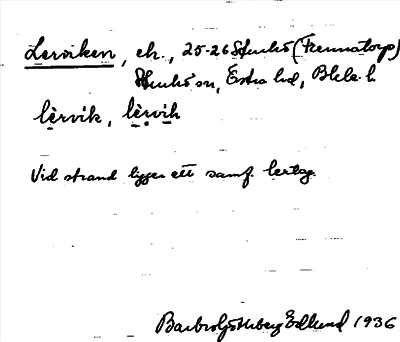 Lerviken, ek., 25-26 Sturkö (Tremmatorp)
Sturkö sn, Östra hd, Blek. l.
lèrvik, lèrvik
Vid strand ligger ett samf. lertag.
Barbro Göthberg Edlund 1936